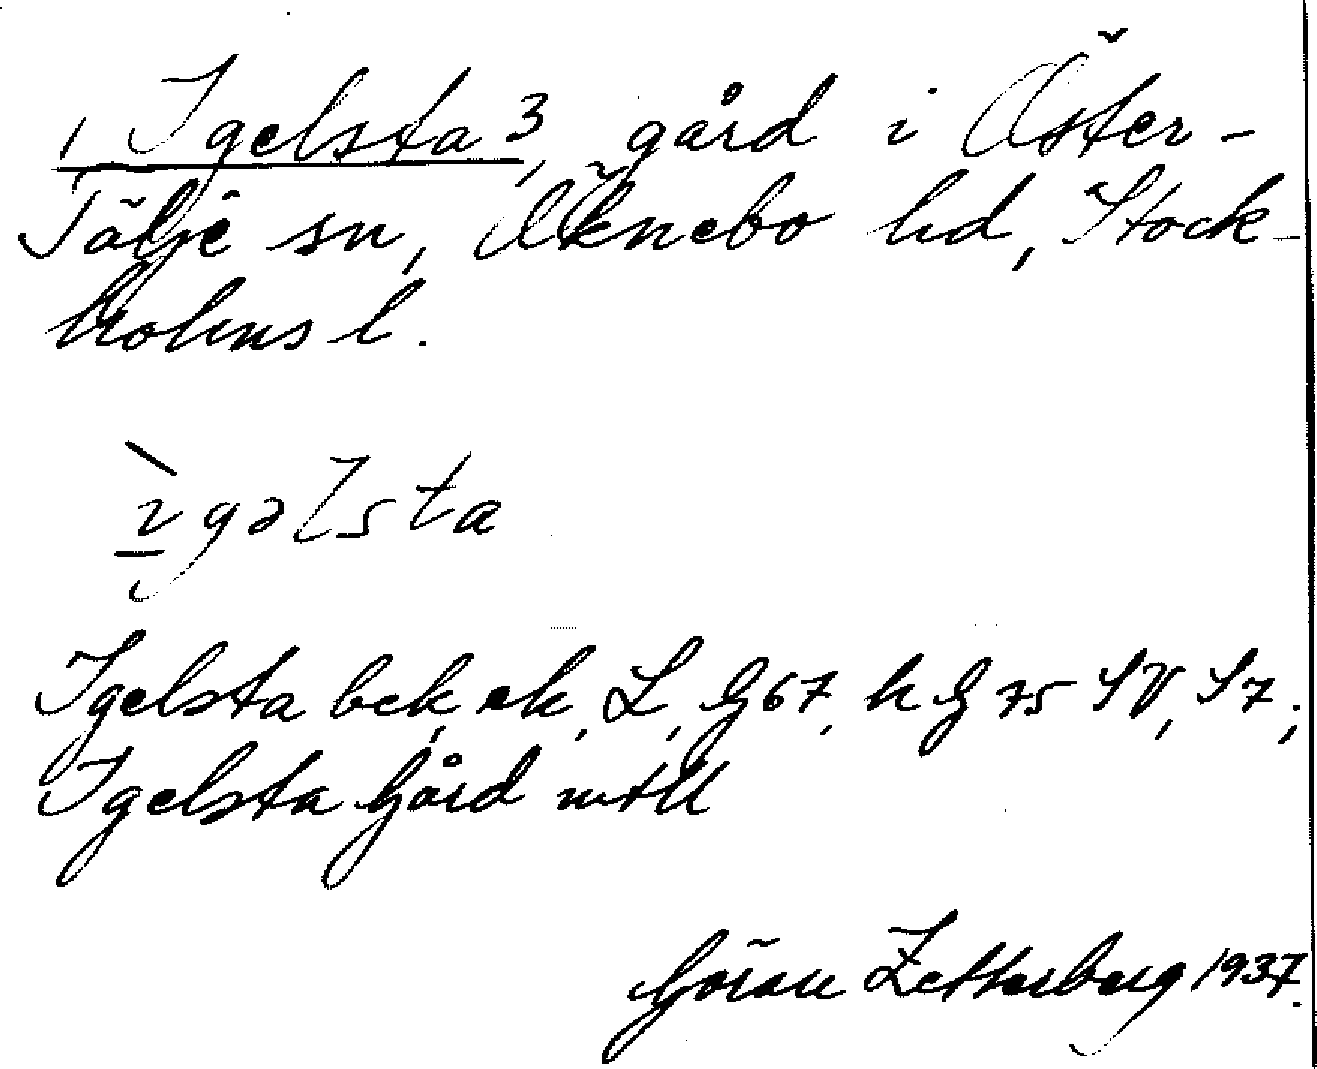 1 Igelsta 3, gård i Öster-
Tälje sn, Öknebo hd, Stock-
holms l.
ìgəlsta
Igelsta bek, ek, L, G67, h G 75 SV, S7;
Igelsta Gård mtll
Göran Zetterberg 1937.